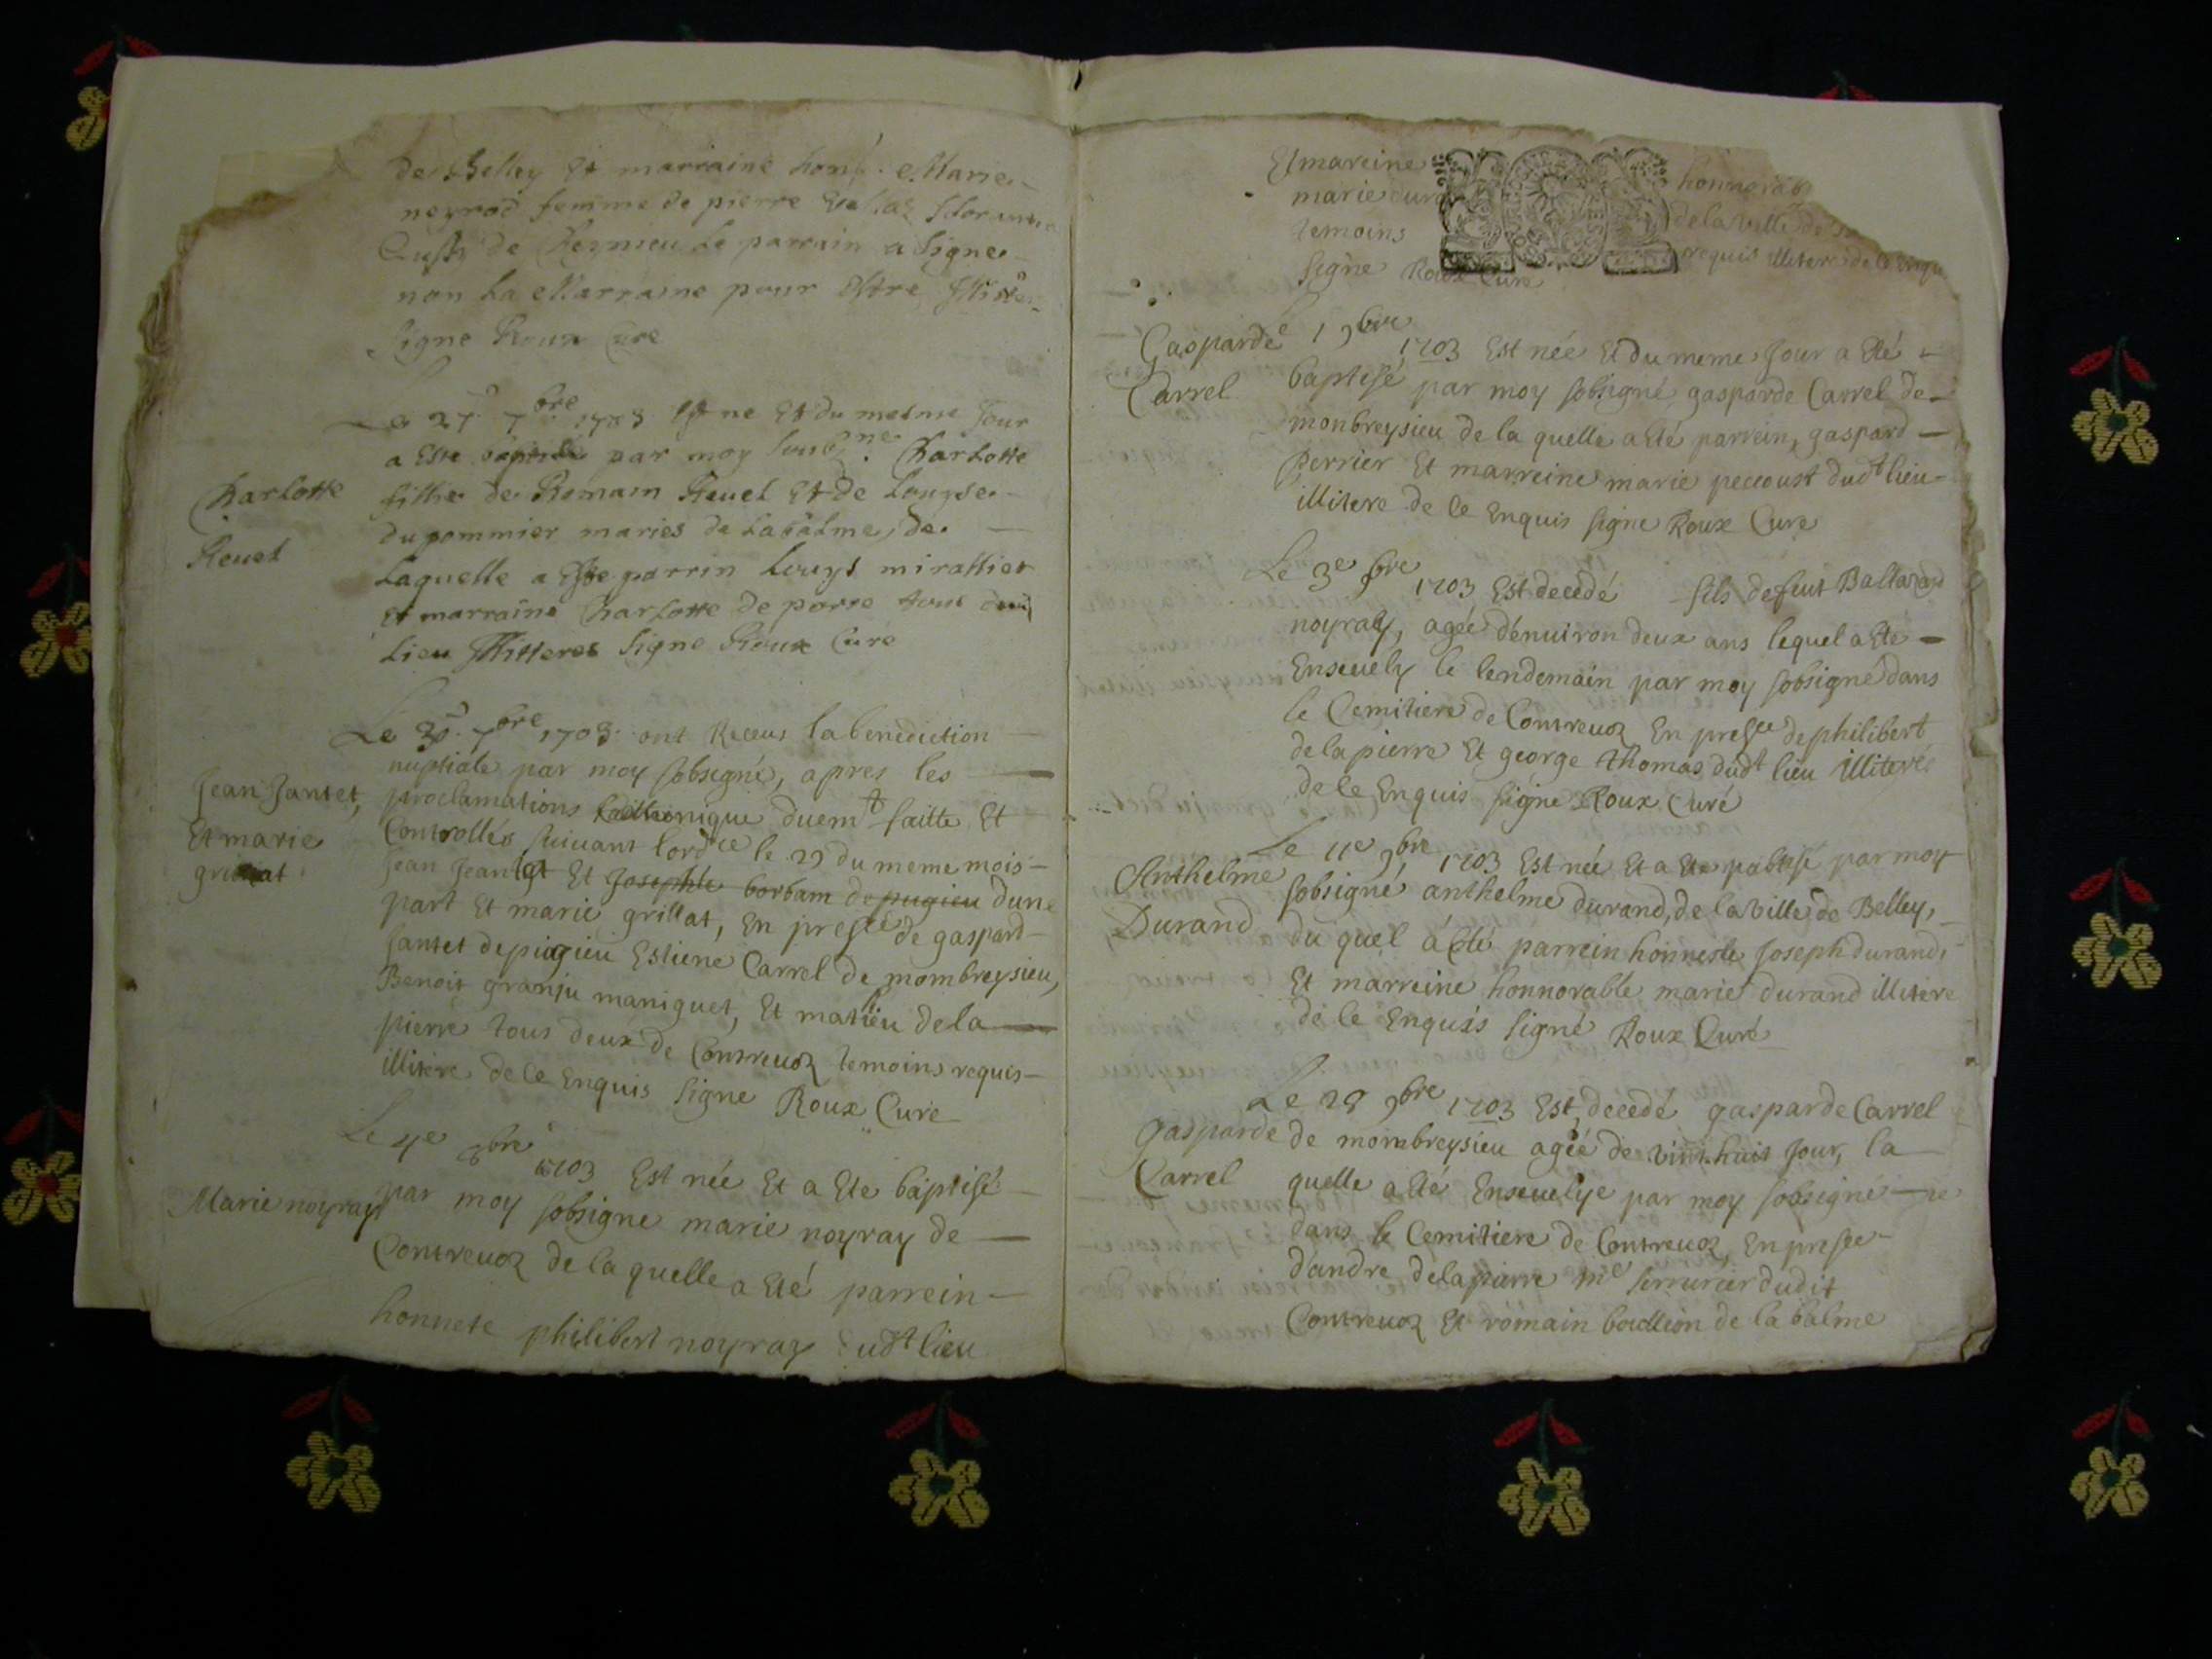 de Belley Et marraine hon. Marie
neyrod femme de pierre
Aussi de le parrain a signe
non La Marraine pour Estre Illit.
Signe Roux Cure
Le 27. 7bre 1703 Est ne Et du mesme Jour
a Este baptisée par moy soubne. Charlotte
Charlotte
Reuel
fillie de Romain Reuel Et de Louyse
du pommier maries de La balme, de
Laquelle a Este parrin Louys mirallier
Et marraine Charlotte de porre tous dud
Lieu Illitteres Signe Roux Cure
Le 30. 7bre 1703 ont Receus la benediction
nuptiale par moy sobsigné, apres les
Jean Jantet,
Et marie
grillat
proclamations duemt faitte Et
Controllés suiuant lordce le 29 du meme mois
Jean Jeantet Et Josephte borbam de pugieu dune
part Et marie grillat, En presce de gaspard
Jantet de pugieu Estiene Carrel de mombreysieu,
Benoit granju maniguet, Et mathieu dela
pierre tous deux de Contreuoz temoins requis
illitere de ce Enquis Signe Roux Cure
Le 4e 8bre 1703 Est née Et a Ete baptisé
Marie noyray
par moy sobsigne marie noyray de
Contreuoz de la quelle a Eté parrein
honnete philibert noyray dudt lieu
Et mareine honnorab
marie dura de la ville de
temoins requis illitere de ce Enqui
signe Roux Cure
Gasparde
Carrel
Le 1 9bre 1703 Est née Et du meme Jour a Eté
baptisé par moy sobsigné gasparde Carrel de
monbreysieu de la quelle a Eté parrein, gaspard
Perrier Et marreine marie peccoust dudt lieu
illitere de ce Enquis signe Roux Cure
Le 3e 9bre 1703 Est decedé fils de feut Baltazard
noyray, agée dénuiron deux ans lequel a Ete
Enseuely le lendemain par moy sobsigné dans
le Cemitiere de Contreuoz En presce de philibert
dela pierre Et george thomas dudt lieu illiteré
de ce Enquis signe Roux Curé
Anthelme
Durand
Le 11e 9bre 1703 Est née Et a Ete pabtisé par moy
sobsigné anthelme durand, de la ville de Belley,
du quel á Eté parrein honneste Joseph durand,
Et marreine honnorable marie durand illitere
de ce Enquis signé Roux Curé
Gasparde
Carrel
Le 28 9bre 1703 Est decedé gasparde Carrel
de mombreysieu agée de vint huit Jour, la
quelle a Eté Enseuelye par moy sobsigné
dans le Cemitiere de Contreuoz, En presce
d'andre dela pierre me serrurier dudit
Contreuoz Et romain de la balme